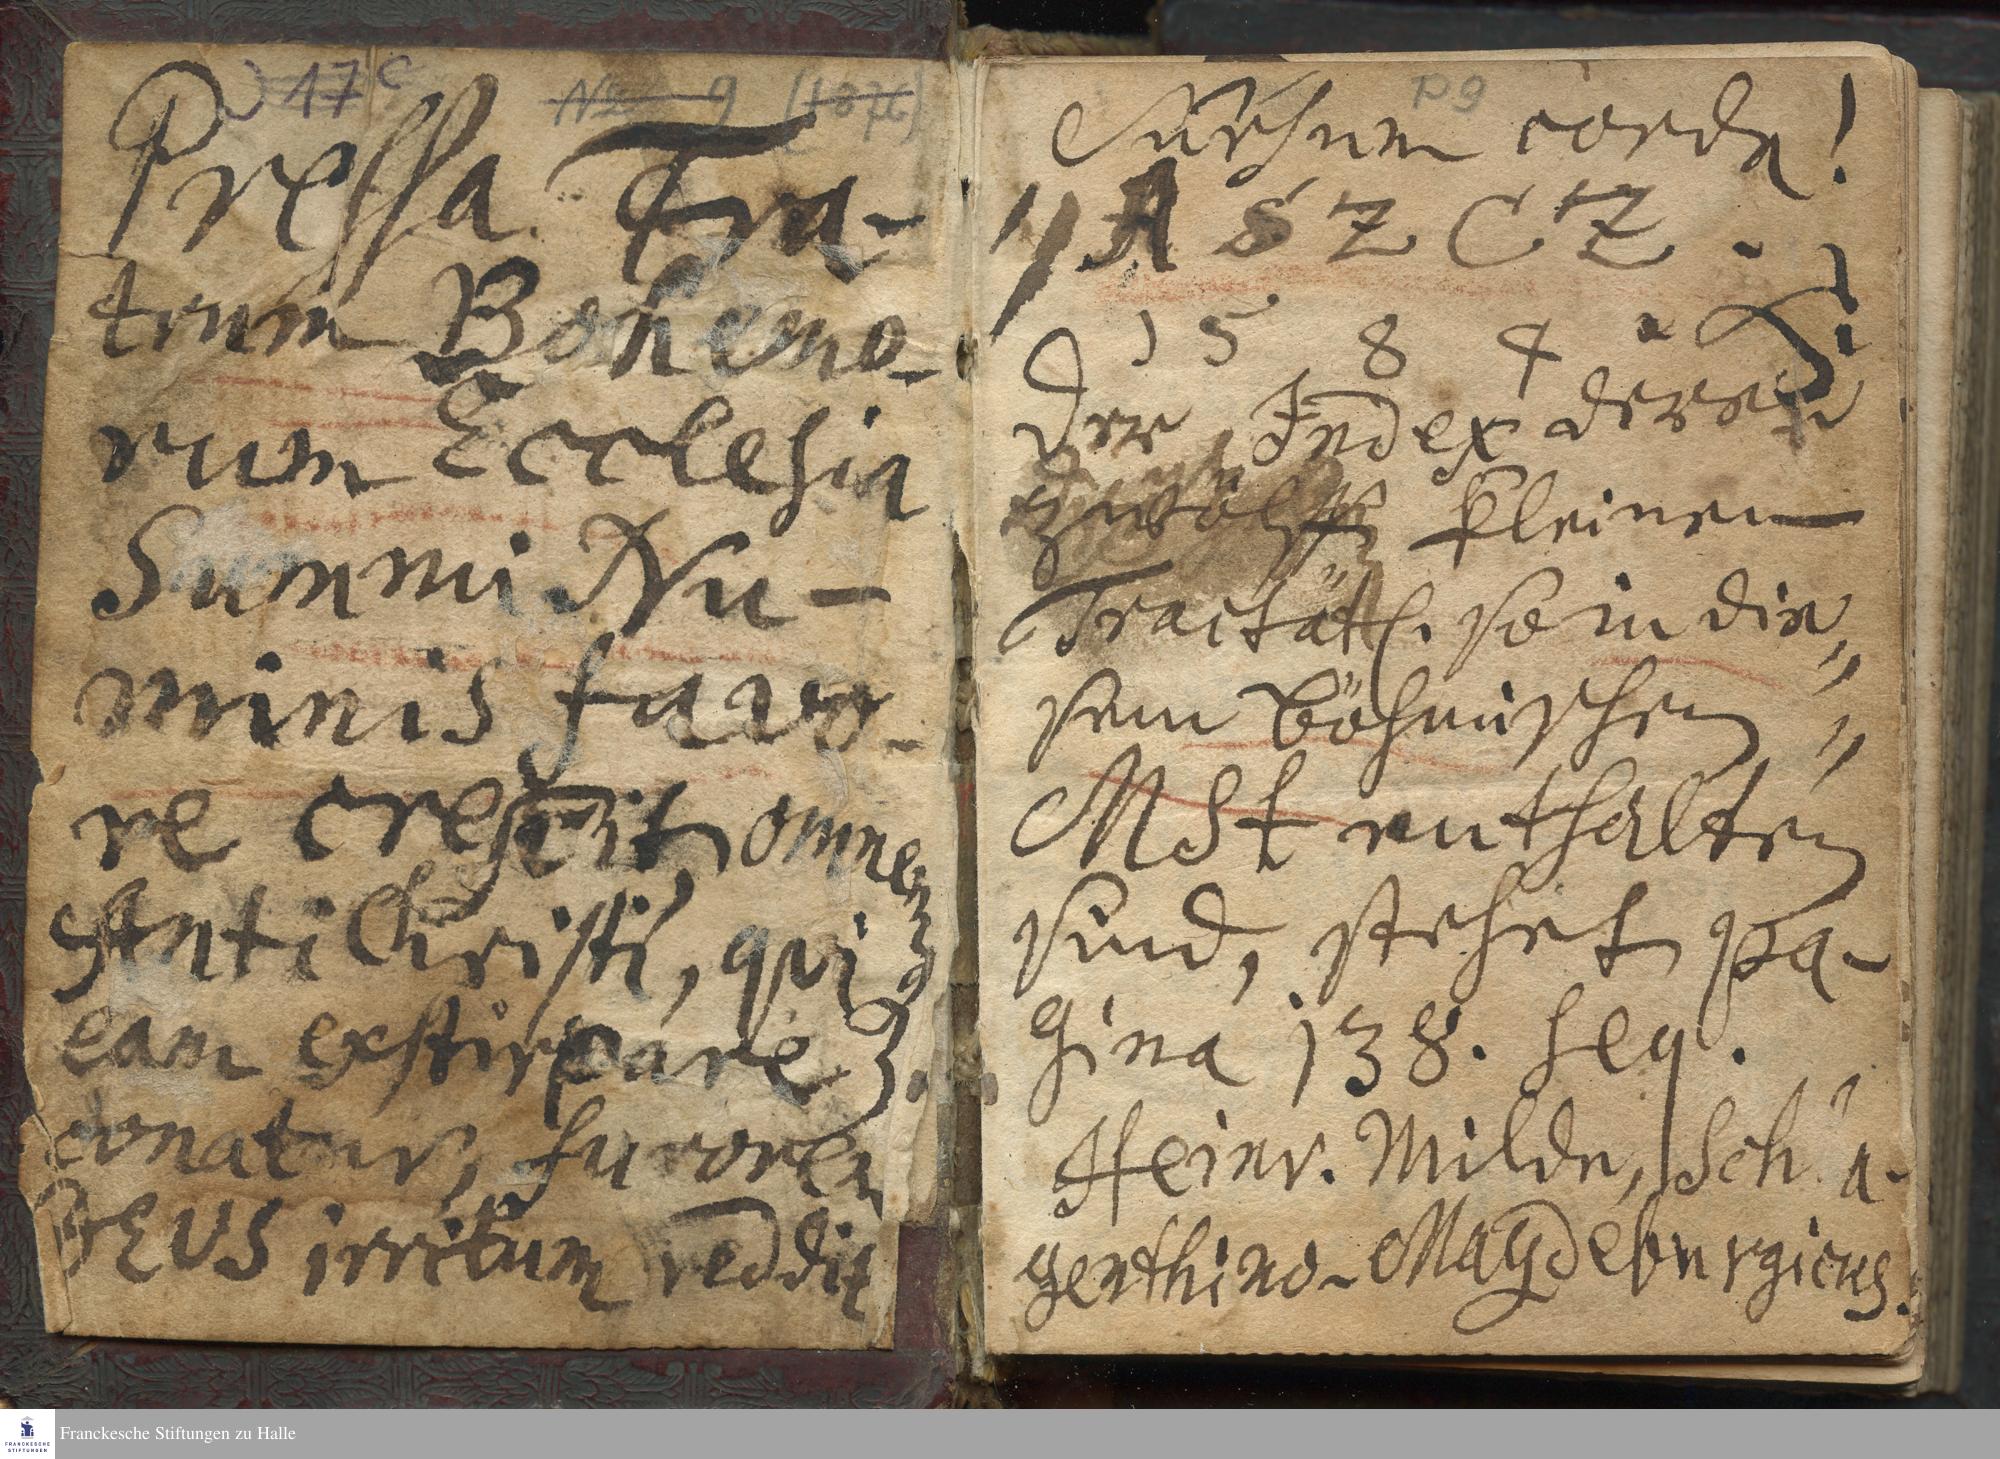 17 c
No 9 (1076)
Pressa Fra-
trum Bohemo-
rum Ecclesia
Summi Nu-
minis favo-
re crescit, omnes
AntiChristi, qui
eam exstirpare
conatur, furorem
DEUS irritum reddit
D 9
Sursum corda!
A S Z C Z
1 5 8 4
Der Index derer
zwölf kleinen
Tractätl. so in die„
sem böhmischen
MSt enthalten
sind, stehet pa-
gina 138. seq.
Heinr. Milde, Schla-
genthino-Magdeburgicus.
FRANCKESCHE
STIFTUNGEN
Franckesche Stiftungen zu Halle